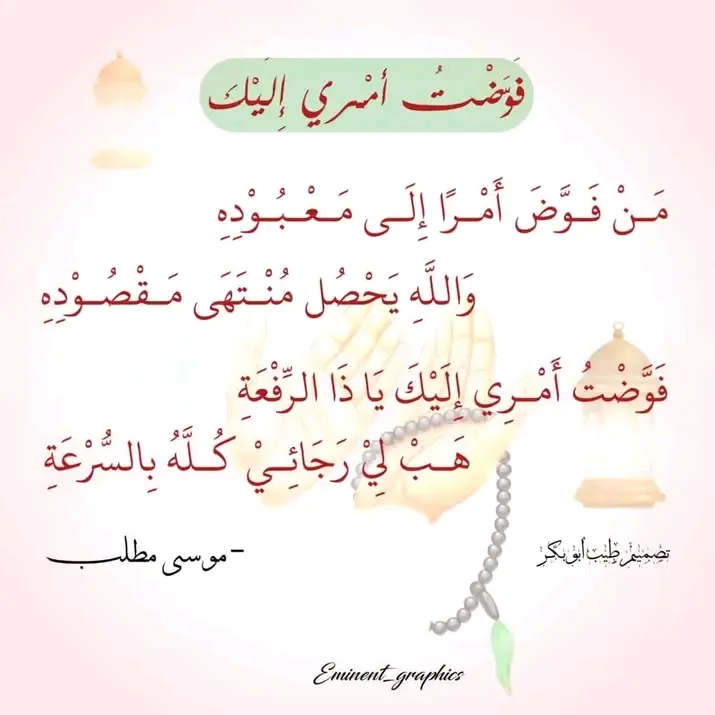 فَوَّضْتُ أمْري إِلَيْك
مَـنْ فَـوَّضَ أَمْـرًا إِلَـى مَـعْـبُـوْدِهِ
وَاللَّهِ يَحْصُل مُنْـتَهَى مَـقْصُـوْدِهِ
فَوَّضْتُ أَمْـرِي إِلَيْكَ يَا ذَا الرِّفْعَةِ
هَـبْ لِيْ رَجَائِـيْ كُـلَّهُ بِالسُّرْعَةِ
تصميم طيب أبوبكر
-موسى مطلب
Eminent_graphics